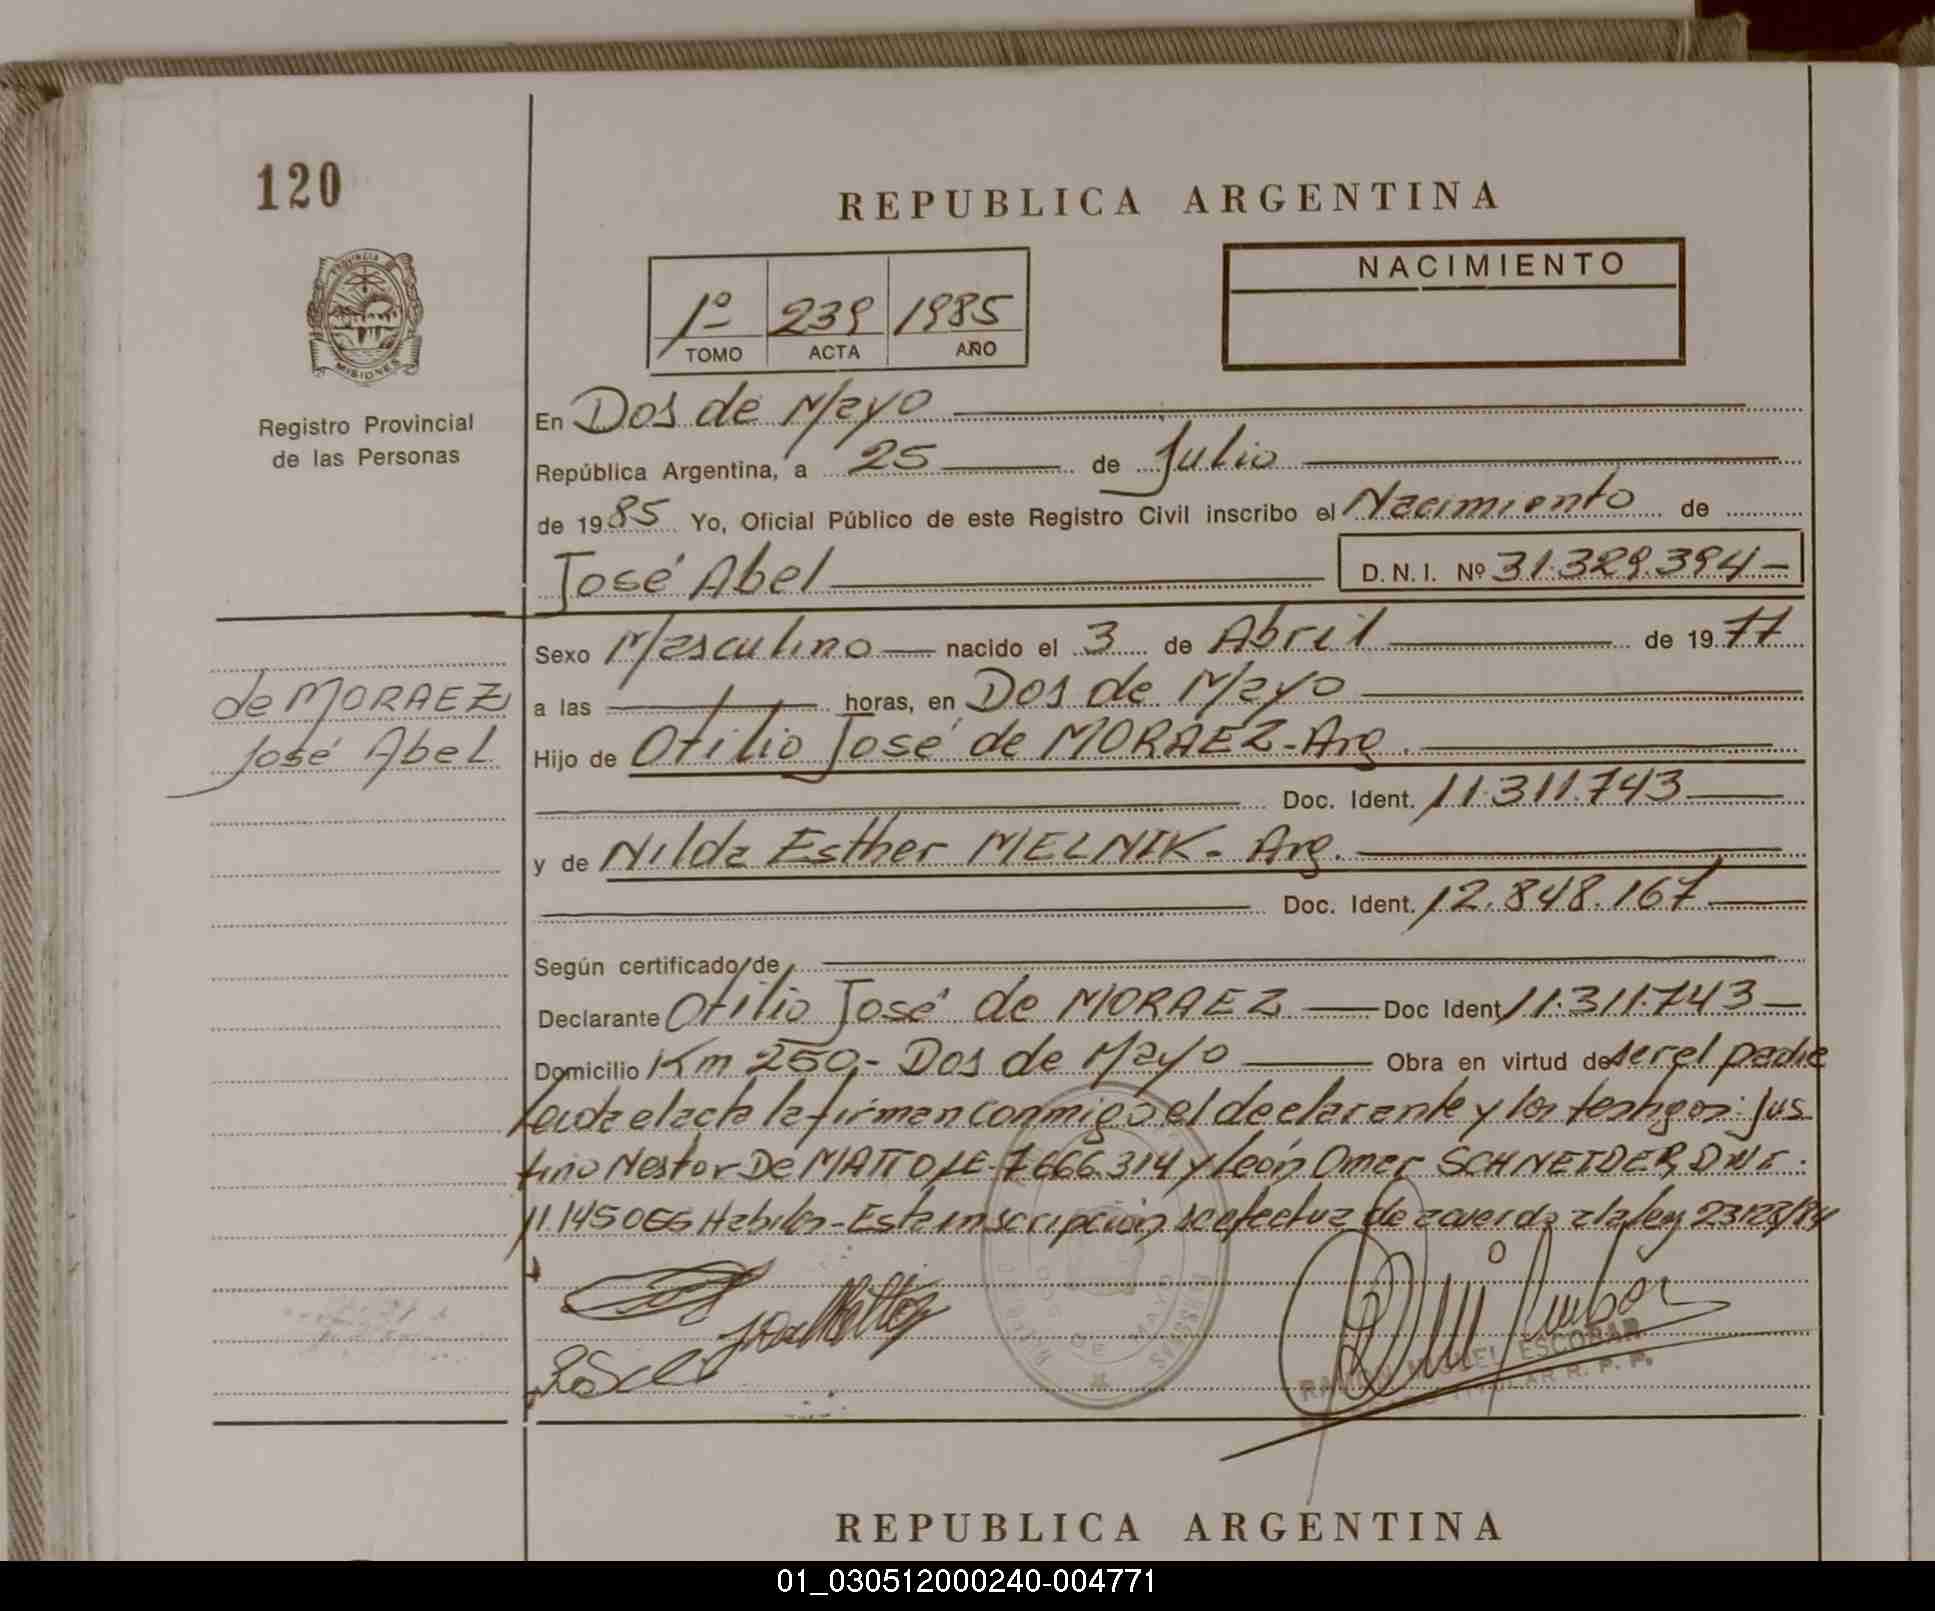 120
REPUBLICA ARGENTINA
PROVINCIA DE
MISIONES
Registro Provincial
de las Personas
1º 239 1985
TOMO ACTA AÑO
NACIMIENTO
En Dos de Mayo
República Argentina, a 25 de Julio
de 1985 Yo, Oficial Público de este Registro Civil inscribo el Nacimiento de
José Abel D.N.I. Nº 31.329.394-
Sexo Masculino nacido el 3 de Abril de 1977
de MORAEZ
José Abel
a las horas, en Dos de Mayo
Hijo de Otilio José de MORAEZ-Arg.
Doc. Ident. 11.311.743
y de Nilda Esther MELNIK- Arg.
Doc. Ident. 12.848.167
Según certificado de
Declarante Otilio José de MORAEZ Doc Ident 11.311.743
Domicilio Km 250,- Dos de Mayo Obra en virtud de ser el padre
Leida el acta la firman conmigo el declarante y los testigos: Jus
tino Nestor De MATTO LE 7.666.314 y León Omer SCHNEIDER, DNI.
11.145066 Habiles-Esta inscripción se efectua de acuerdo a la ley 23128/84
REGISTRO
DOS DE MAYO
MISIONES
RAMON MIGUEL ESCOBAR
TITULAR R. P. P.
REPUBLICA ARGENTINA
01_030512000240-004771